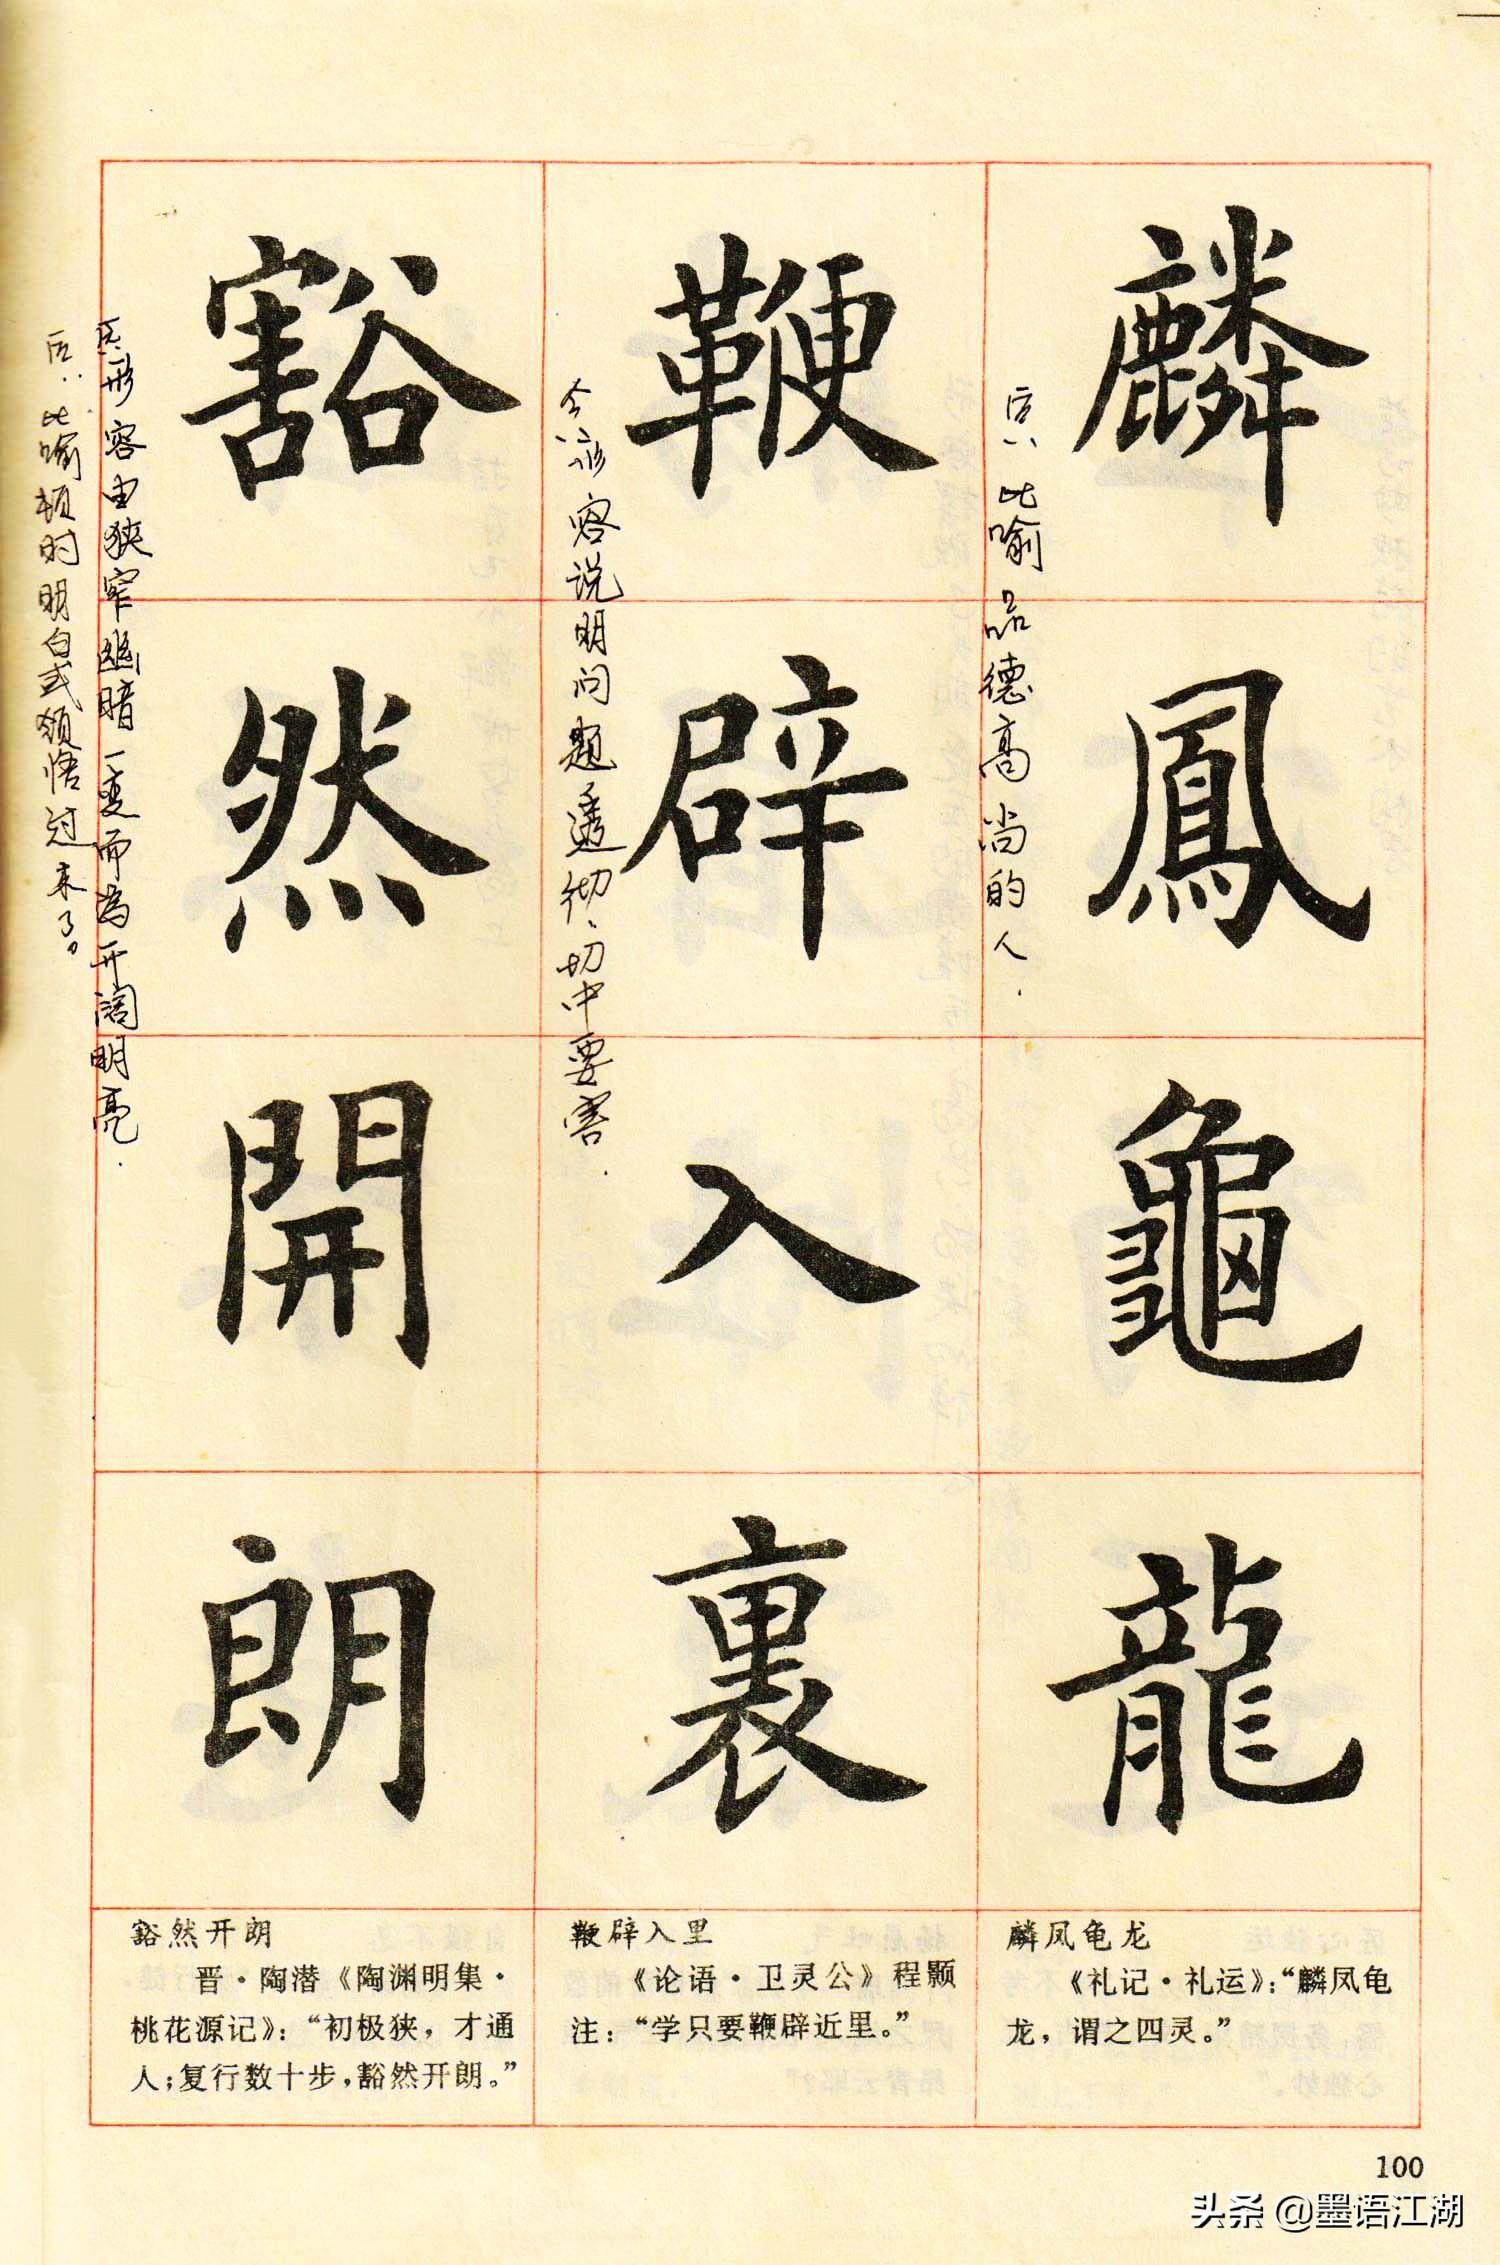 麟鳳龜龍
后：比喻品德高尚的人.
鞭辟入裏
今：形容说明问题透彻、切中要害.
豁然開朗
后：形容由狭窄幽暗一变而为开阔明亮.
后：比喻顿时明白或领悟过来了。
麟凤龟龙
《礼记·礼运》：“麟凤龟
龙，谓之四灵。”
鞭辟入里
《论语·卫灵公》程颢
注：“学只要鞭辟近里。”
豁然开朗
晋·陶潜《陶渊明集·
桃花源记》：“初极狭，才通
人；复行数十步，豁然开朗。”
100
头条 @墨语江湖